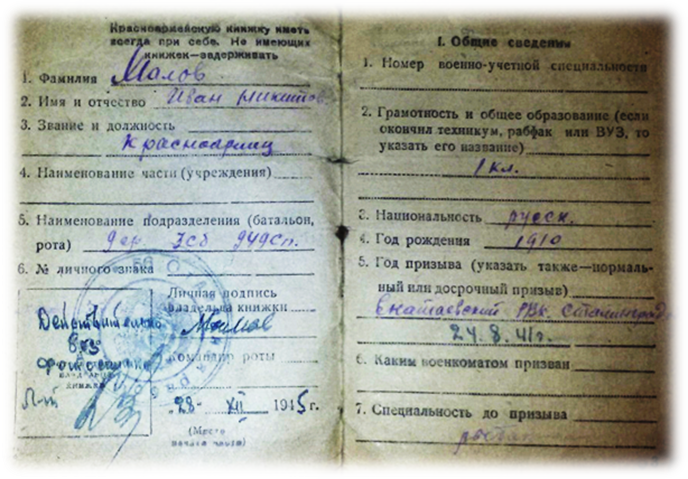 Красноармейскую книжку иметь
всегда при себе. Не имеющих
книжек—задерживать
1. Фамилия Малов
2. Имя и отчество Иван Никитов.
3. Звание и должность
Красноармеец
4. Наименование части (учреждения)
5. Наименование подразделения (батальон,
рота)
6. № личного знака
Личная подпись
владельца книжки Малов
Действительно
без
фотокарточки
Командир роты
"28" XII 1945 г.
(Место
печати части)
I. Общие сведения
1. Номер военно-учетной специальности
2. Грамотность и общее образование (если
окончил техникум, рабфак или ВУЗ, то
указать его название)
1 кл.
3. Национальность русск.
4. Год рождения 1910
5. Год призыва (указать также—нормаль-
ный или досрочный призыв)
РВК. Сталинград
24.8.41г.
6. Каким военкоматом призван
7. Специальность до призыва